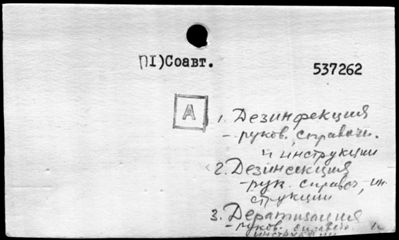 П1)Соавт.
537262
А
1. Дезинфекция
- руков. справочн.
и инструкции
2. Дезинсекция
- рук. справоч., ин
струкции
3. Дератизация
- руков. справоч. и
инструкции